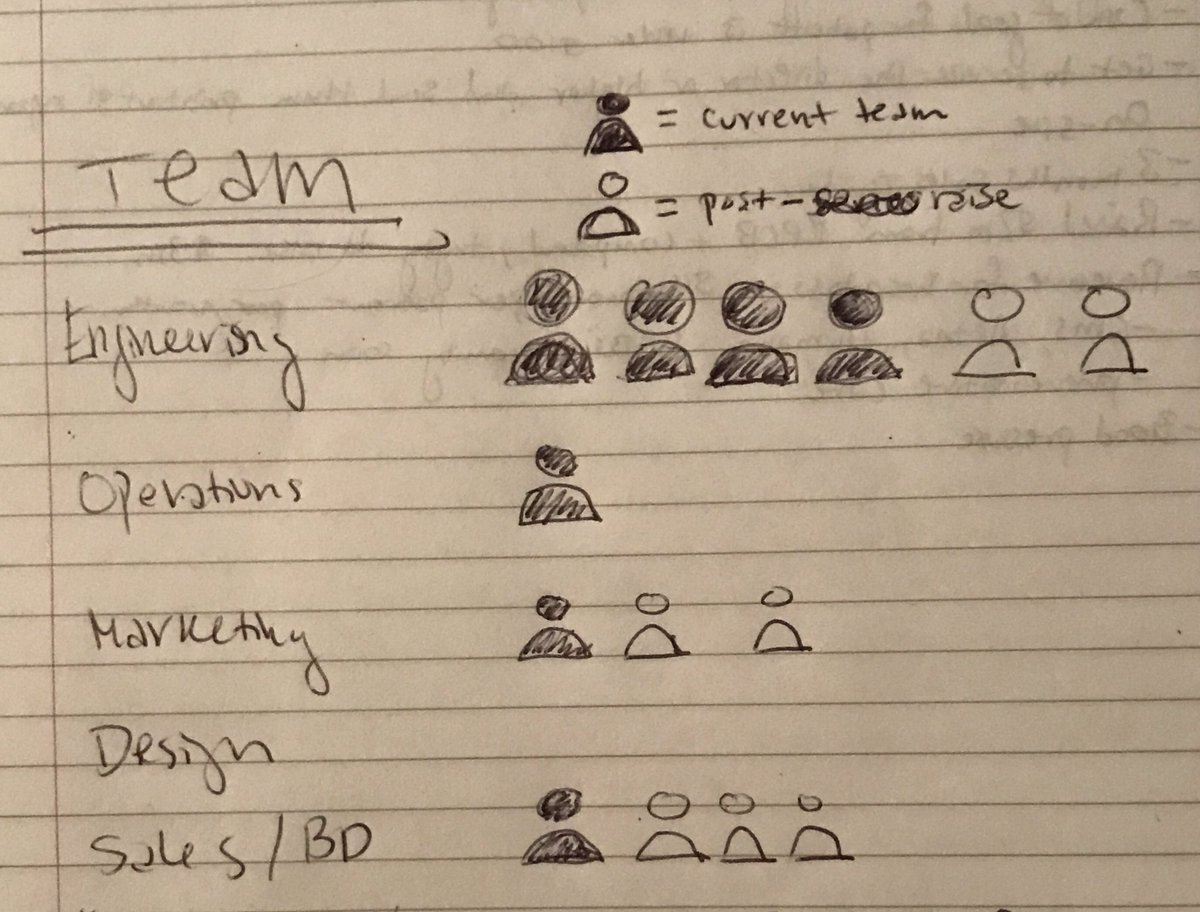 = current team
Team
= post- raise
Engineering
Operations
Marketing
Design
Sales/BD